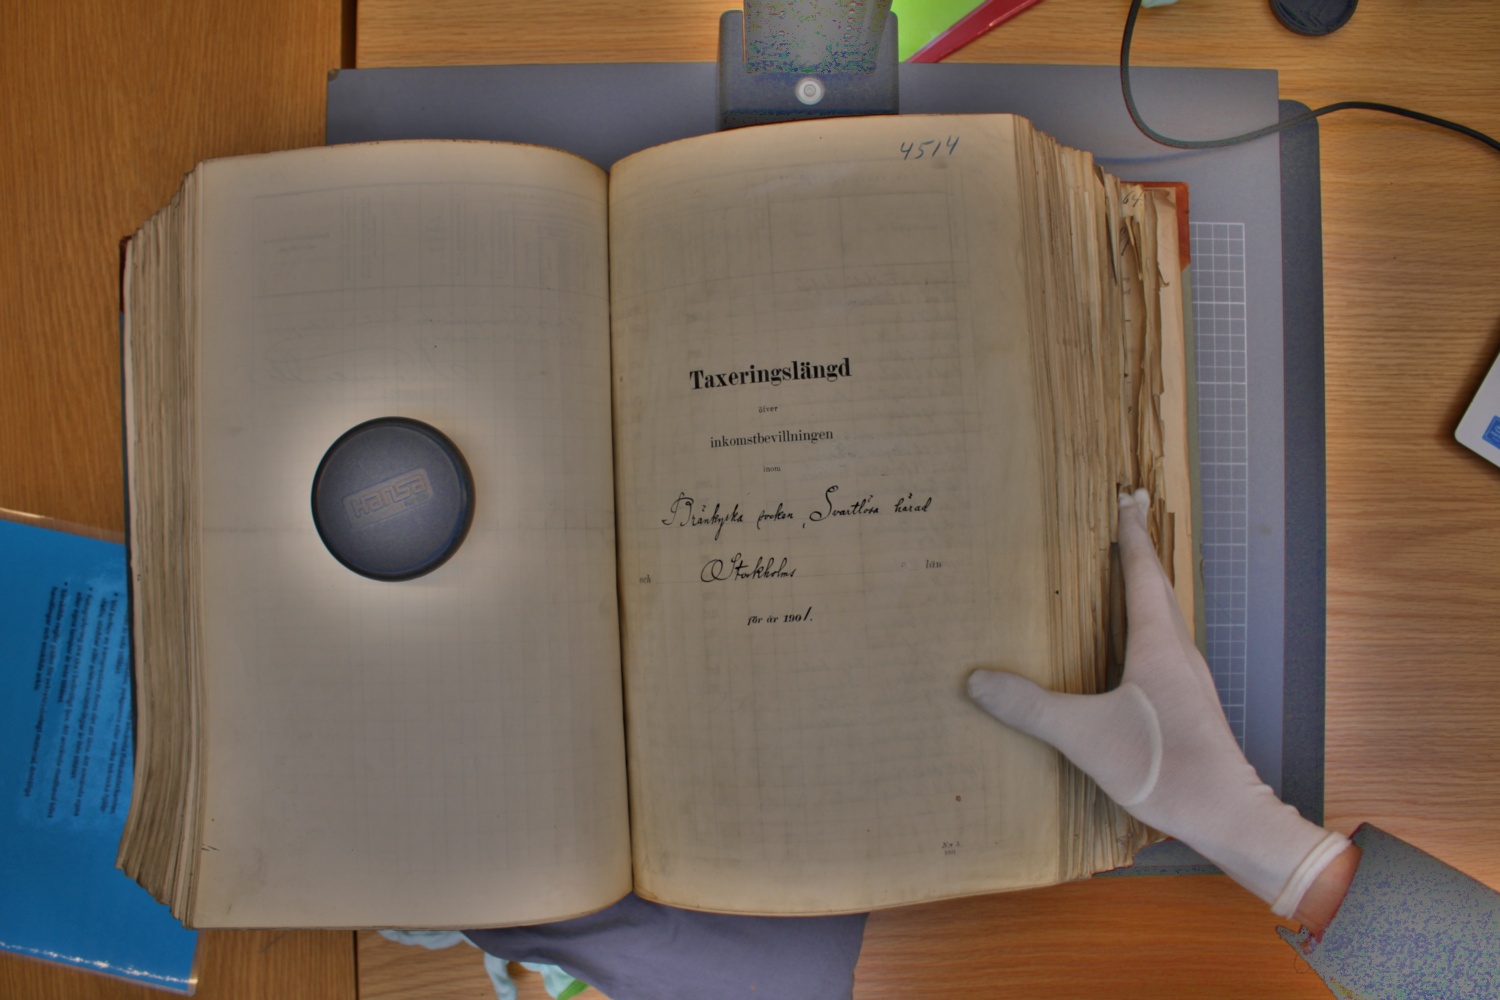 4514
Taxeringslängd
öfver
inkomstbevillningen
inom
Brännkyrka socken, Svartlösa härad
och Stockholms län
för år 1901.
Hansa